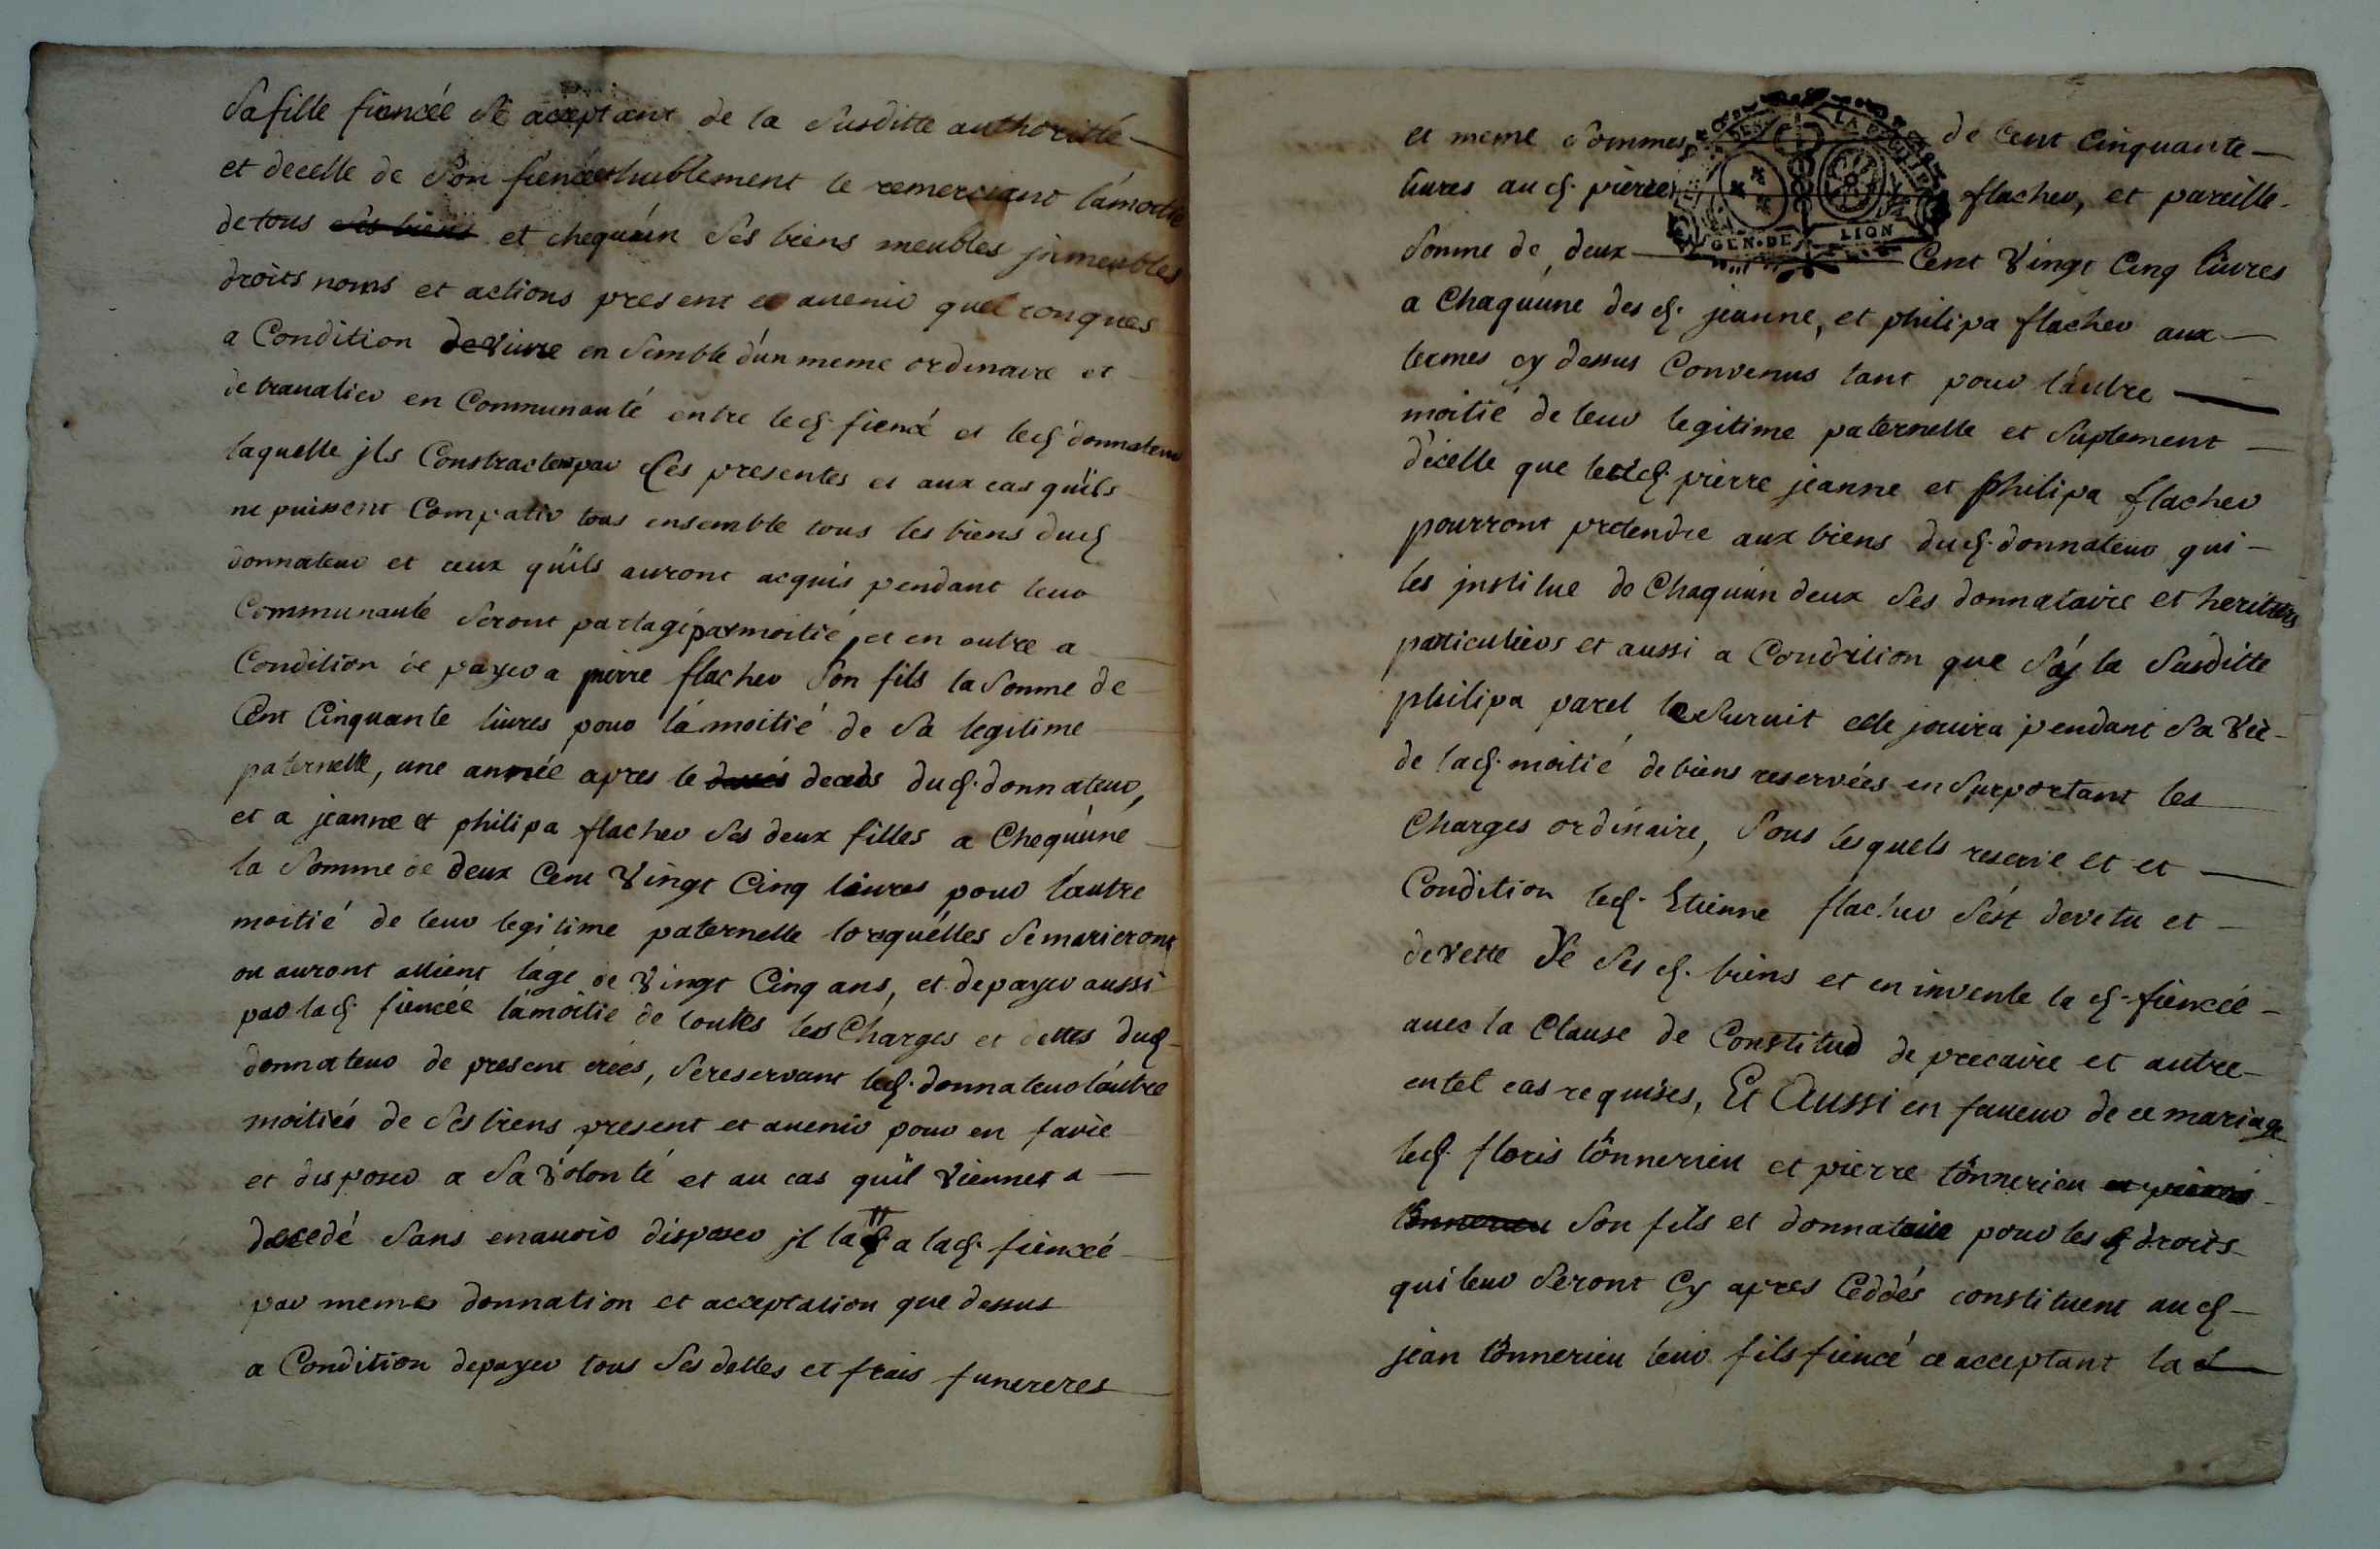 Sa fille fiencée et aceptant de la Susditte authorité
et decelle de Son fiencé et humblement le remerciant la moitie
de tous ses biens et chequ'un Ses biens meubles jnmeubles
droits noms et actions present et avenir quelconques
a Condition de vivre en Semble d'un meme ordinaire et
de travalier en Communauté entre led. fiencé et led. donnateur
laquelle jls Constractent par Ces presentes et aux cas quils
ne puissent Compatir tous ensemble tous les biens dud
donnateur et ceux quils auront acquis pendant leur
Communauté Seront partagé par moitié, et en outre a
Condition de payer a pierre flacher Son fils la Somme de
Cent Cinquante livres pour la moitié de Sa legitime
paternelle, une année apres le deceds dud. donnateur,
et a jeanne et philipa flacher Ses deux filles a Chequ'une
la Somme de deux Cent Vingt Cinq livres pour l'autre
moitié de leur legitime paternelle lorsquélles Se marieront
ou auront attient l'age de Vingt Cinq ans, et de payer aussi
par lad fiencée la moitie de toutes les Charges et dettes dud.
donnateur de present crées, Se reservant led. donnateur l'autre
moitiés de Ses biens present et avenir pour en favie
et disposer a Sa Volonté et au cas quil Viennet a
decedé Sans en avoir disposer jl la a lad. fiencée
par memes donnation et acceptation que dessus
a Condition de payer tous Ses dettes et frais funereres
et meme Sommes de Cent Cinquante
livres aud. pierre flacher, et pareille
Somme de deux Cent Vingt Cinq livres
GEN. DE LION
a Chaqu'une des d. jeanne, et philipa flacher aux
termes cy dessus Convenus tant pour l'autre
moitié de leur legitime paternelle et Suplement
d'icelle que lesd. pierre jeanne et philipa flacher
pourront pretendre aux biens dud. donnateur qui
les jnstitue de Chaqu'un deux Ses donnataire et heritiers
particuliers et aussi a Condition que Sy la Susditte
philipa paret le Survit elle jouira pendant Sa Vie
de lad. moitié de biens reservées en Surportant les
Charges ordinaire, Sous lesquels reserve et et
Condition led. Etienne flacher S'est devetu et
devette de Ses d. biens et en invente la d. fiencée
avec la Clause de Constitud de precaire et autre
en tel cas requises, Et Aussi en faveur de ce mariage
led. floris tonnerieu et pierre tonnerieu et pierre
tonnerieu Son fils et donnataire pour les d droits
qui leur Seront Cy apres Ceddés constituent aud
jean tonnerieu leur fils fiencé ce acceptant la